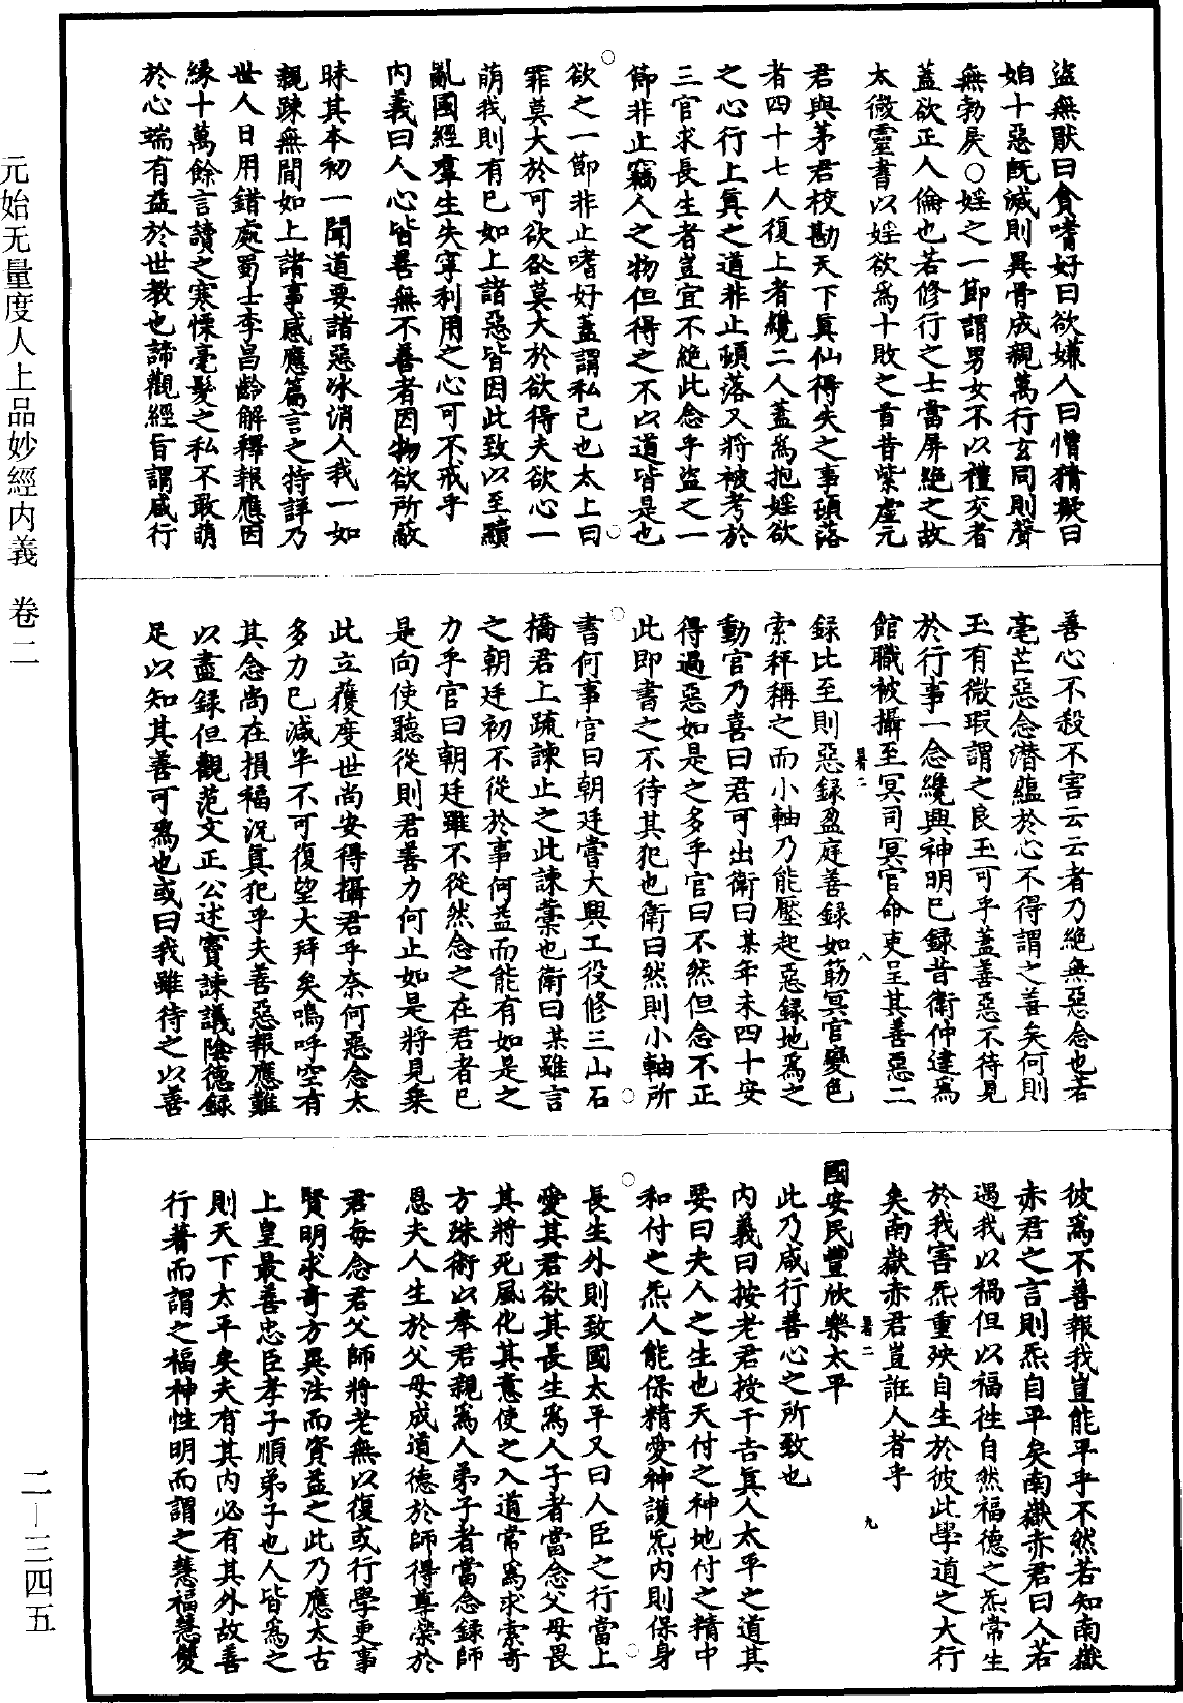 盜無厭曰貪嗜好曰欲嫌人曰憎猜擬曰
妬十惡旣滅則異骨成親萬行玄同則聲
無勃戾○婬之一節謂男女不以禮交者
蓋欲正人倫也若修行之士當屏絕之故
太微靈書以婬欲爲十敗之首昔紫虛元
君與茅君校勘天下真仙得失之事頭落
者四十七人復上者纔二人蓋爲抱婬欲
之心行上真之道非止頭落又將被考於
三官求長生者豈宜不絕此念乎盜之一
節非止竊人之物但得之不以道皆是也
欲之一節非止嗜好蓋謂私已也太上曰
罪莫大於可欲咎莫大於欲得夫欲心一
萌我則有已如上諸惡皆因此致以至黷
亂國經羣生失寧利用之心可不戒乎
內義曰人心皆善無不善者因物欲所蔽
昧其本初一聞道要諸惡冰消人我一如
親踈無間如上諸事感應篇言之特詳乃
世人日用錯處蜀士李昌齡解釋報應因
緣十萬餘言讀之寒慄毫髮之私不敢萌
於心端有益於世教也諦觀經旨謂咸行
善心不殺不害云云者乃絕無惡念也若
毫芒惡念潛蘊於心不得謂之善矣何則
玉有微瑕謂之良玉可乎蓋善惡不待見
於行事一念纔興神明已録昔衛仲達爲
館職被攝至冥司冥官命吏呈其善惡二
暑二 八
録比至則惡録盈庭善録如筯冥官變色
索秤稱之而小軸乃能壓起惡録地爲之
動官乃喜曰君可出衛曰某年未四十安
得過惡如是之多乎官曰不然但念不正
此即書之不待其犯也衛曰然則小軸所
書何事官曰朝廷嘗大興工役修三山石
橋君上䟽諫止之此諫藁也衛曰某雖言
之朝廷初不從於事何益而能有如是之
力乎官曰朝廷雖不從然念之在君者已
是向使聽從則君善力何止如是將見乘
此立獲度世尚安得攝君乎奈何惡念太
多力已減半不可復望大拜矣嗚呼空有
其念尚在損福況真犯乎夫善惡報應難
以盡録但觀范文正公述竇諫議陰德録
足以知其善可爲也或曰我雖待之以善
彼爲不善報我豈能平乎不然若知南嶽
赤君之言則炁自平矣南嶽赤君曰人若
遇我以禍但以福徃自然福德之炁常生
於我害炁重殃自生於彼此學道之大行
矣南嶽赤君豈誑人者乎
暑二 九
國安民豐欣樂太平
此乃咸行善心之所致也
內義曰按老君授干吉真人太平之道其
要曰夫人之生也天付之神地付之精中
和付之炁人能保精愛神護炁內則保身
長生外則致國太平又曰人臣之行當上
愛其君欲其長生爲人子者當念父母畏
其將死風化其意使之入道常爲求索奇
方殊術以奉君親爲人弟子者當念録師
恩夫人生於父母成道德於師得尊榮於
君每念君父師將老無以復或行學更事
賢明求奇方異法而資益之此乃應太古
上皇最善忠臣孝子順弟子也人皆爲之
則天下太平矣夫有其內必有其外故善
行著而謂之福神性明而謂之慧福慧雙
元始无量度人上品妙經內義 卷二
二—三四五